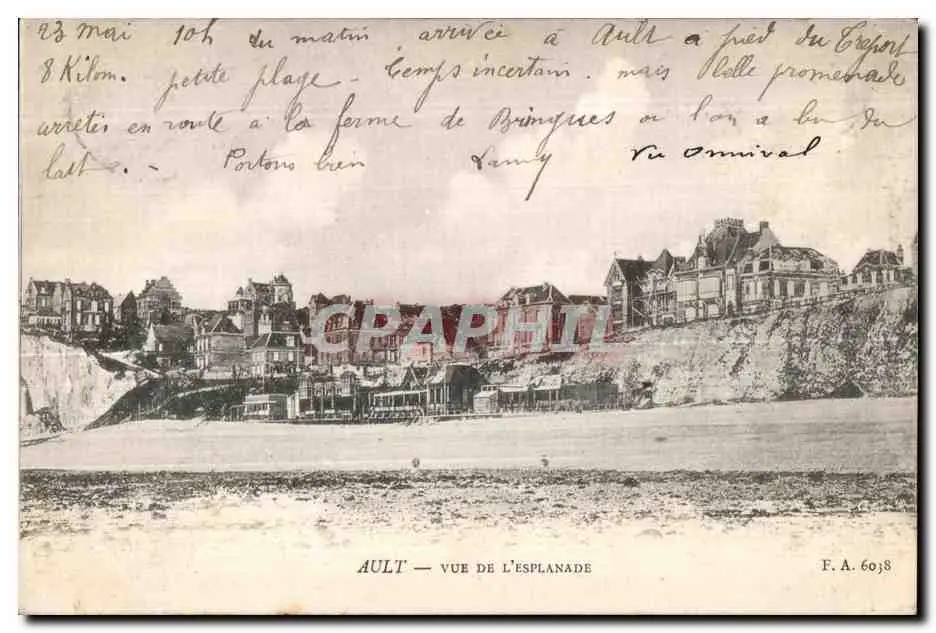 23 mai 10h du matin. arrivée à Ault à pied du Tréport
8 Kilom. petite plage - temps incertain. mais belle promenade
arretés en route à la ferme de Bringues où l'on a bu du
lait. - Portons bien Vu Onnival
CPARAMA
AULT — VUE DE L'ESPLANADE
F. A. 6038